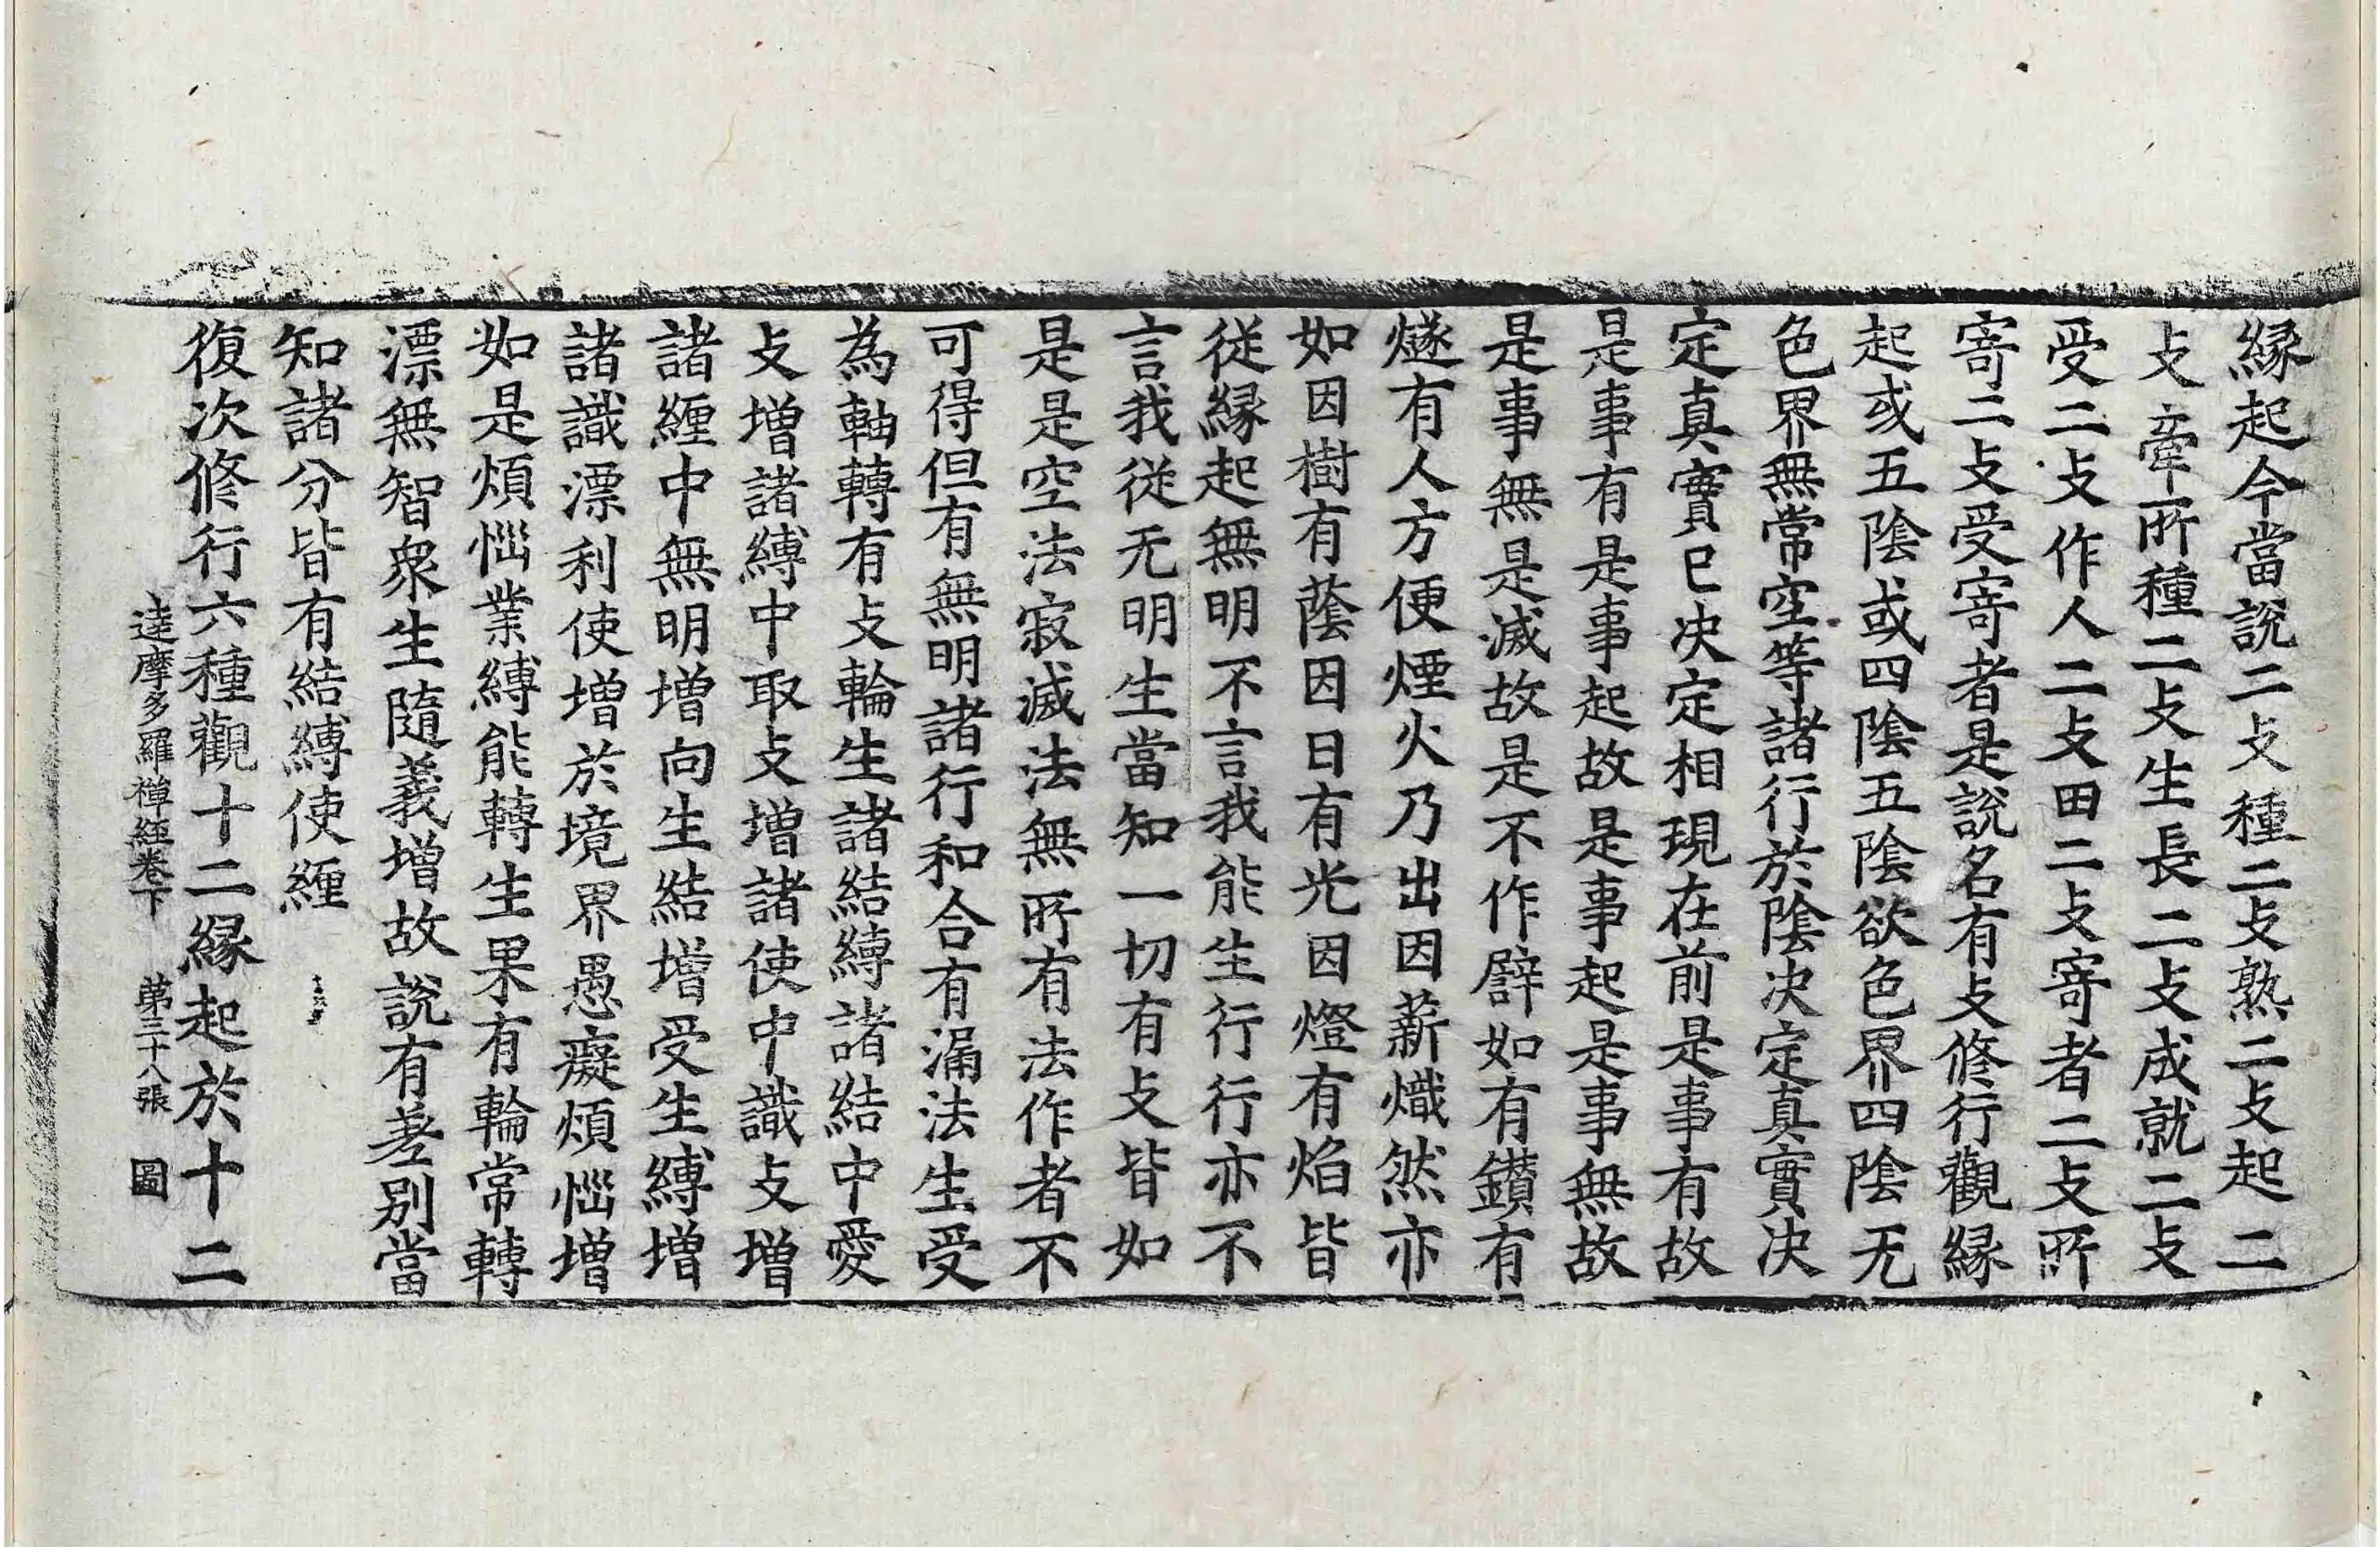 縁起今當說二支種二支熟二支起二
支牽所種二支生長二支成就二支
受二支作人二支田二支寄者二支所
寄二支受寄者是說名有支修行觀縁
起或五陰或四陰五陰欲色界四陰无
色界無常空等諸行於陰决定真實决
定真實已决定相現在前是事有故
是事有是事起故是事起是事無故
是事無是滅故是不作譬如有鑚有
燧有人方便煙火乃出因薪熾然亦
如因樹有蔭因日有光因燈有焰皆
從縁起無明不言我能生行行亦不
言我從无明生當知一切有支皆如
是是空法寂滅法無所有法作者不
可得但有無明諸行和合有漏法生受
為軸轉有支輪生諸結縛諸結中愛
支增諸縛中取支增諸使中識支增
諸纏中無明增向生結增受生縛增
諸識漂利使增於境界愚癡煩惱增
如是煩惱業縛能轉生果有輪常轉
漂無智衆生隨義增故說有差別當
知諸分皆有結縛使纏
復次修行六種觀十二縁起於十二
達摩多羅禪經卷下 第三十八張 圖